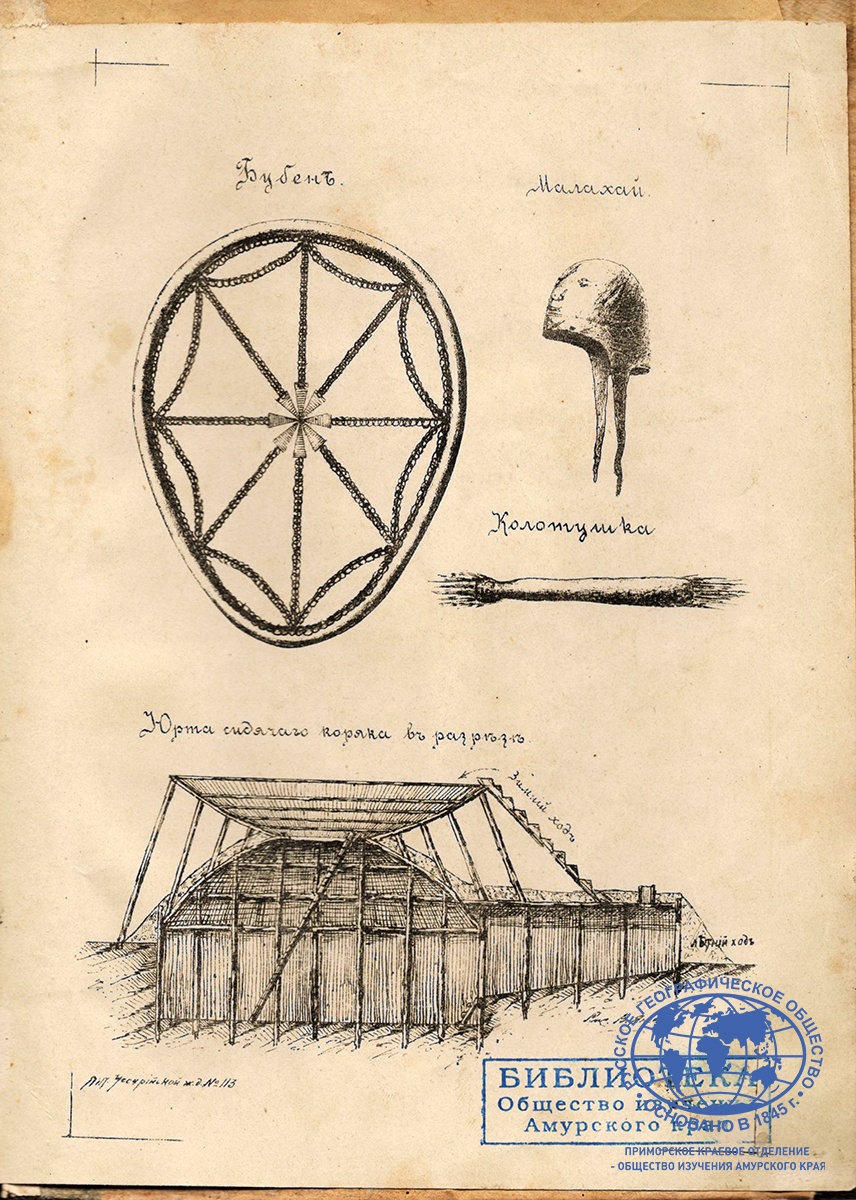 Бубенъ.
Малахай.
Колотушка
Юрта сидячаго коряка въ разрѣзѣ.
Зимний ходъ
лѣтний ходъ
Лит. Уссурійской ж.д. № 113
БИБЛИОТЕКА
Общество изучения
Амурского края
РУССКОЕ ГЕОГРАФИЧЕСКОЕ ОБЩЕСТВО
• ОСНОВАНО В 1845 г. •
ПРИМОРСКОЕ КРАЕВОЕ ОТДЕЛЕНИЕ
- ОБЩЕСТВО ИЗУЧЕНИЯ АМУРСКОГО КРАЯ